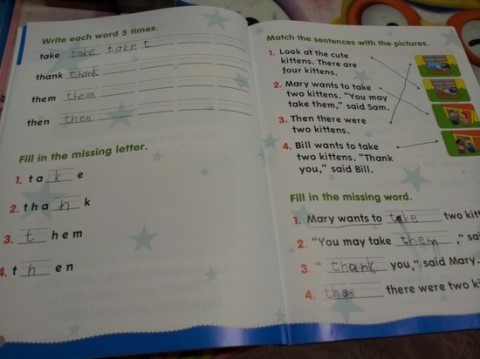 Write each word 5 times.
take take take t
thank thank
them them
then then
Fill in the missing letter.
1. t a k e
2. t h a n k
3. t h e m
4. t h e n
Match the sentences with the pictures.
1. Look at the cute
kittens. There are
four kittens.
2. Mary wants to take
two kittens. "You may
take them," said Sam.
3. Then there were
two kittens.
4. Bill wants to take
two kittens. "Thank
you," said Bill.
Fill in the missing word.
1. Mary wants to take two kitt
2. "You may take them ," sa
3. " thank you," said Mary.
4. there were two ki